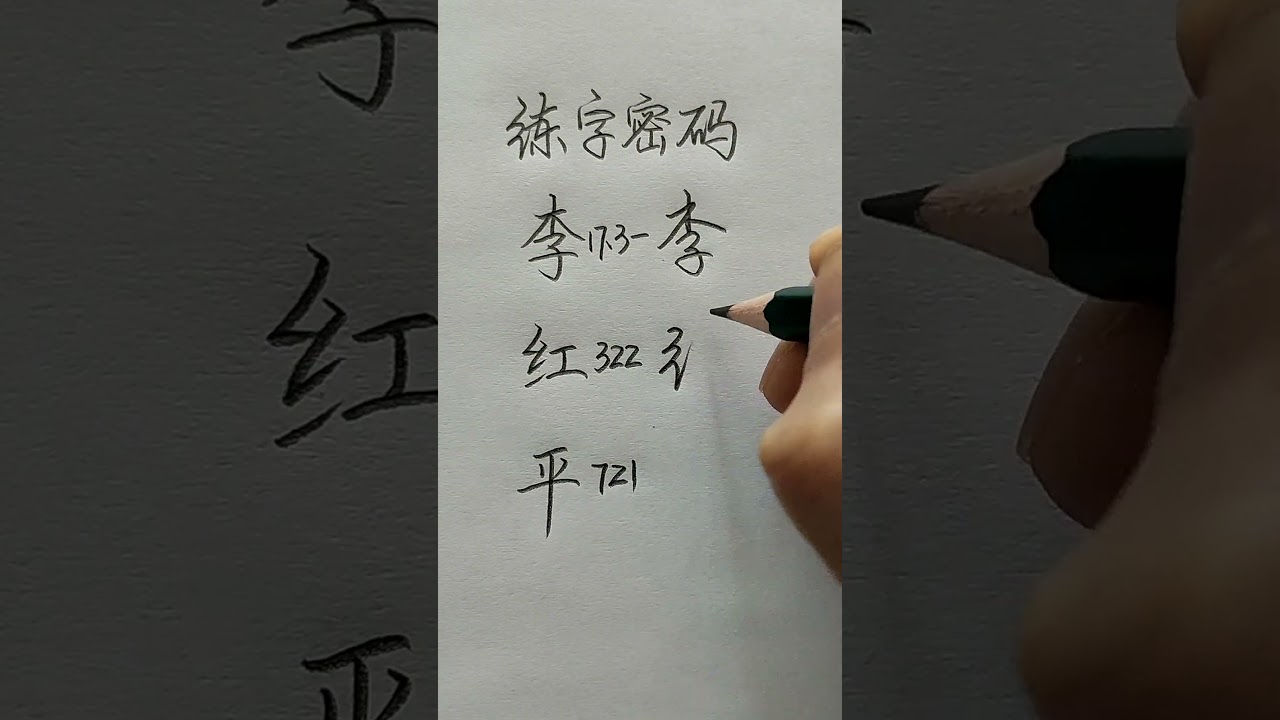 练字密码
李 173一 李
红 322
平 721